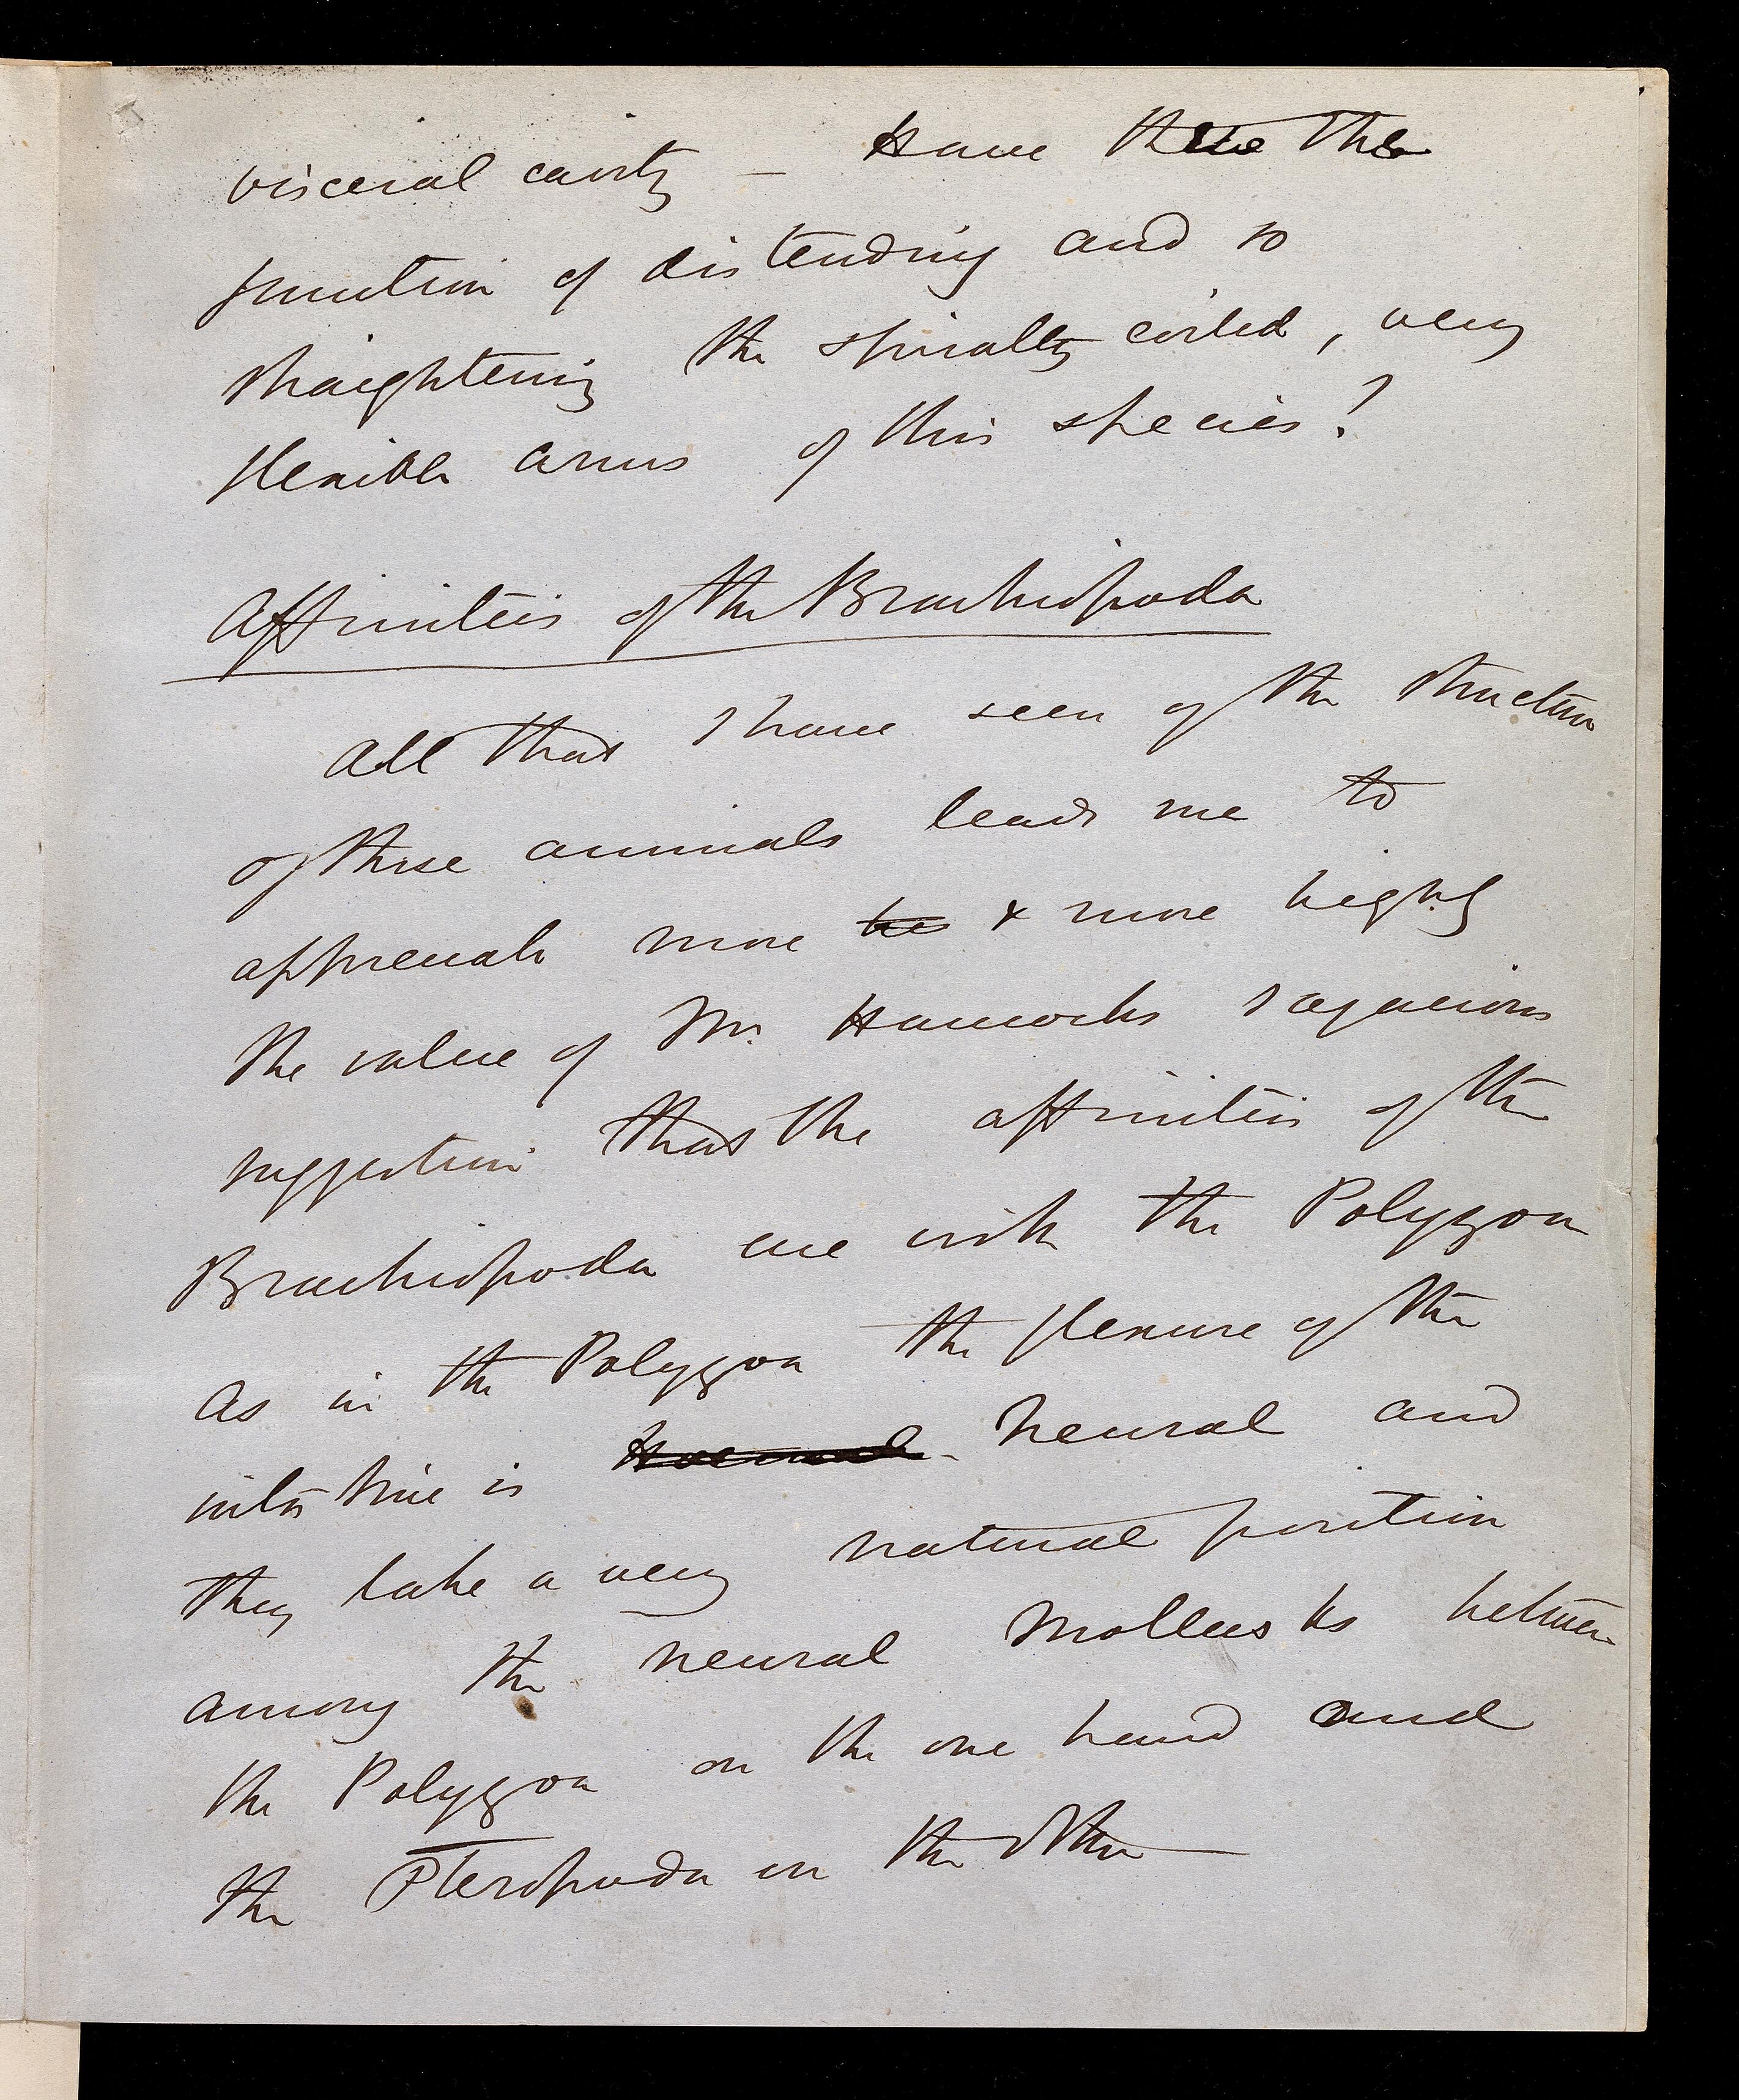 visceral cavity – Have these the
function of distending and so
straightening the spirally coiled, very
flexible arms of this species?
Affinities of the Brachiopoda
All that I have seen of the structure
of these animals leads me to
appreciate more & more highly
the value of Mr. Hancocks sagacious
suggestion that the affinities of the
Brachiopoda are with the Polyzoa
As in the Polyzoa the flexure of the
intestine is Haemal neural and
they take a very natural position
among the neural Mollusks between
the Polyzoa on the one hand and
the Pteropoda on the other